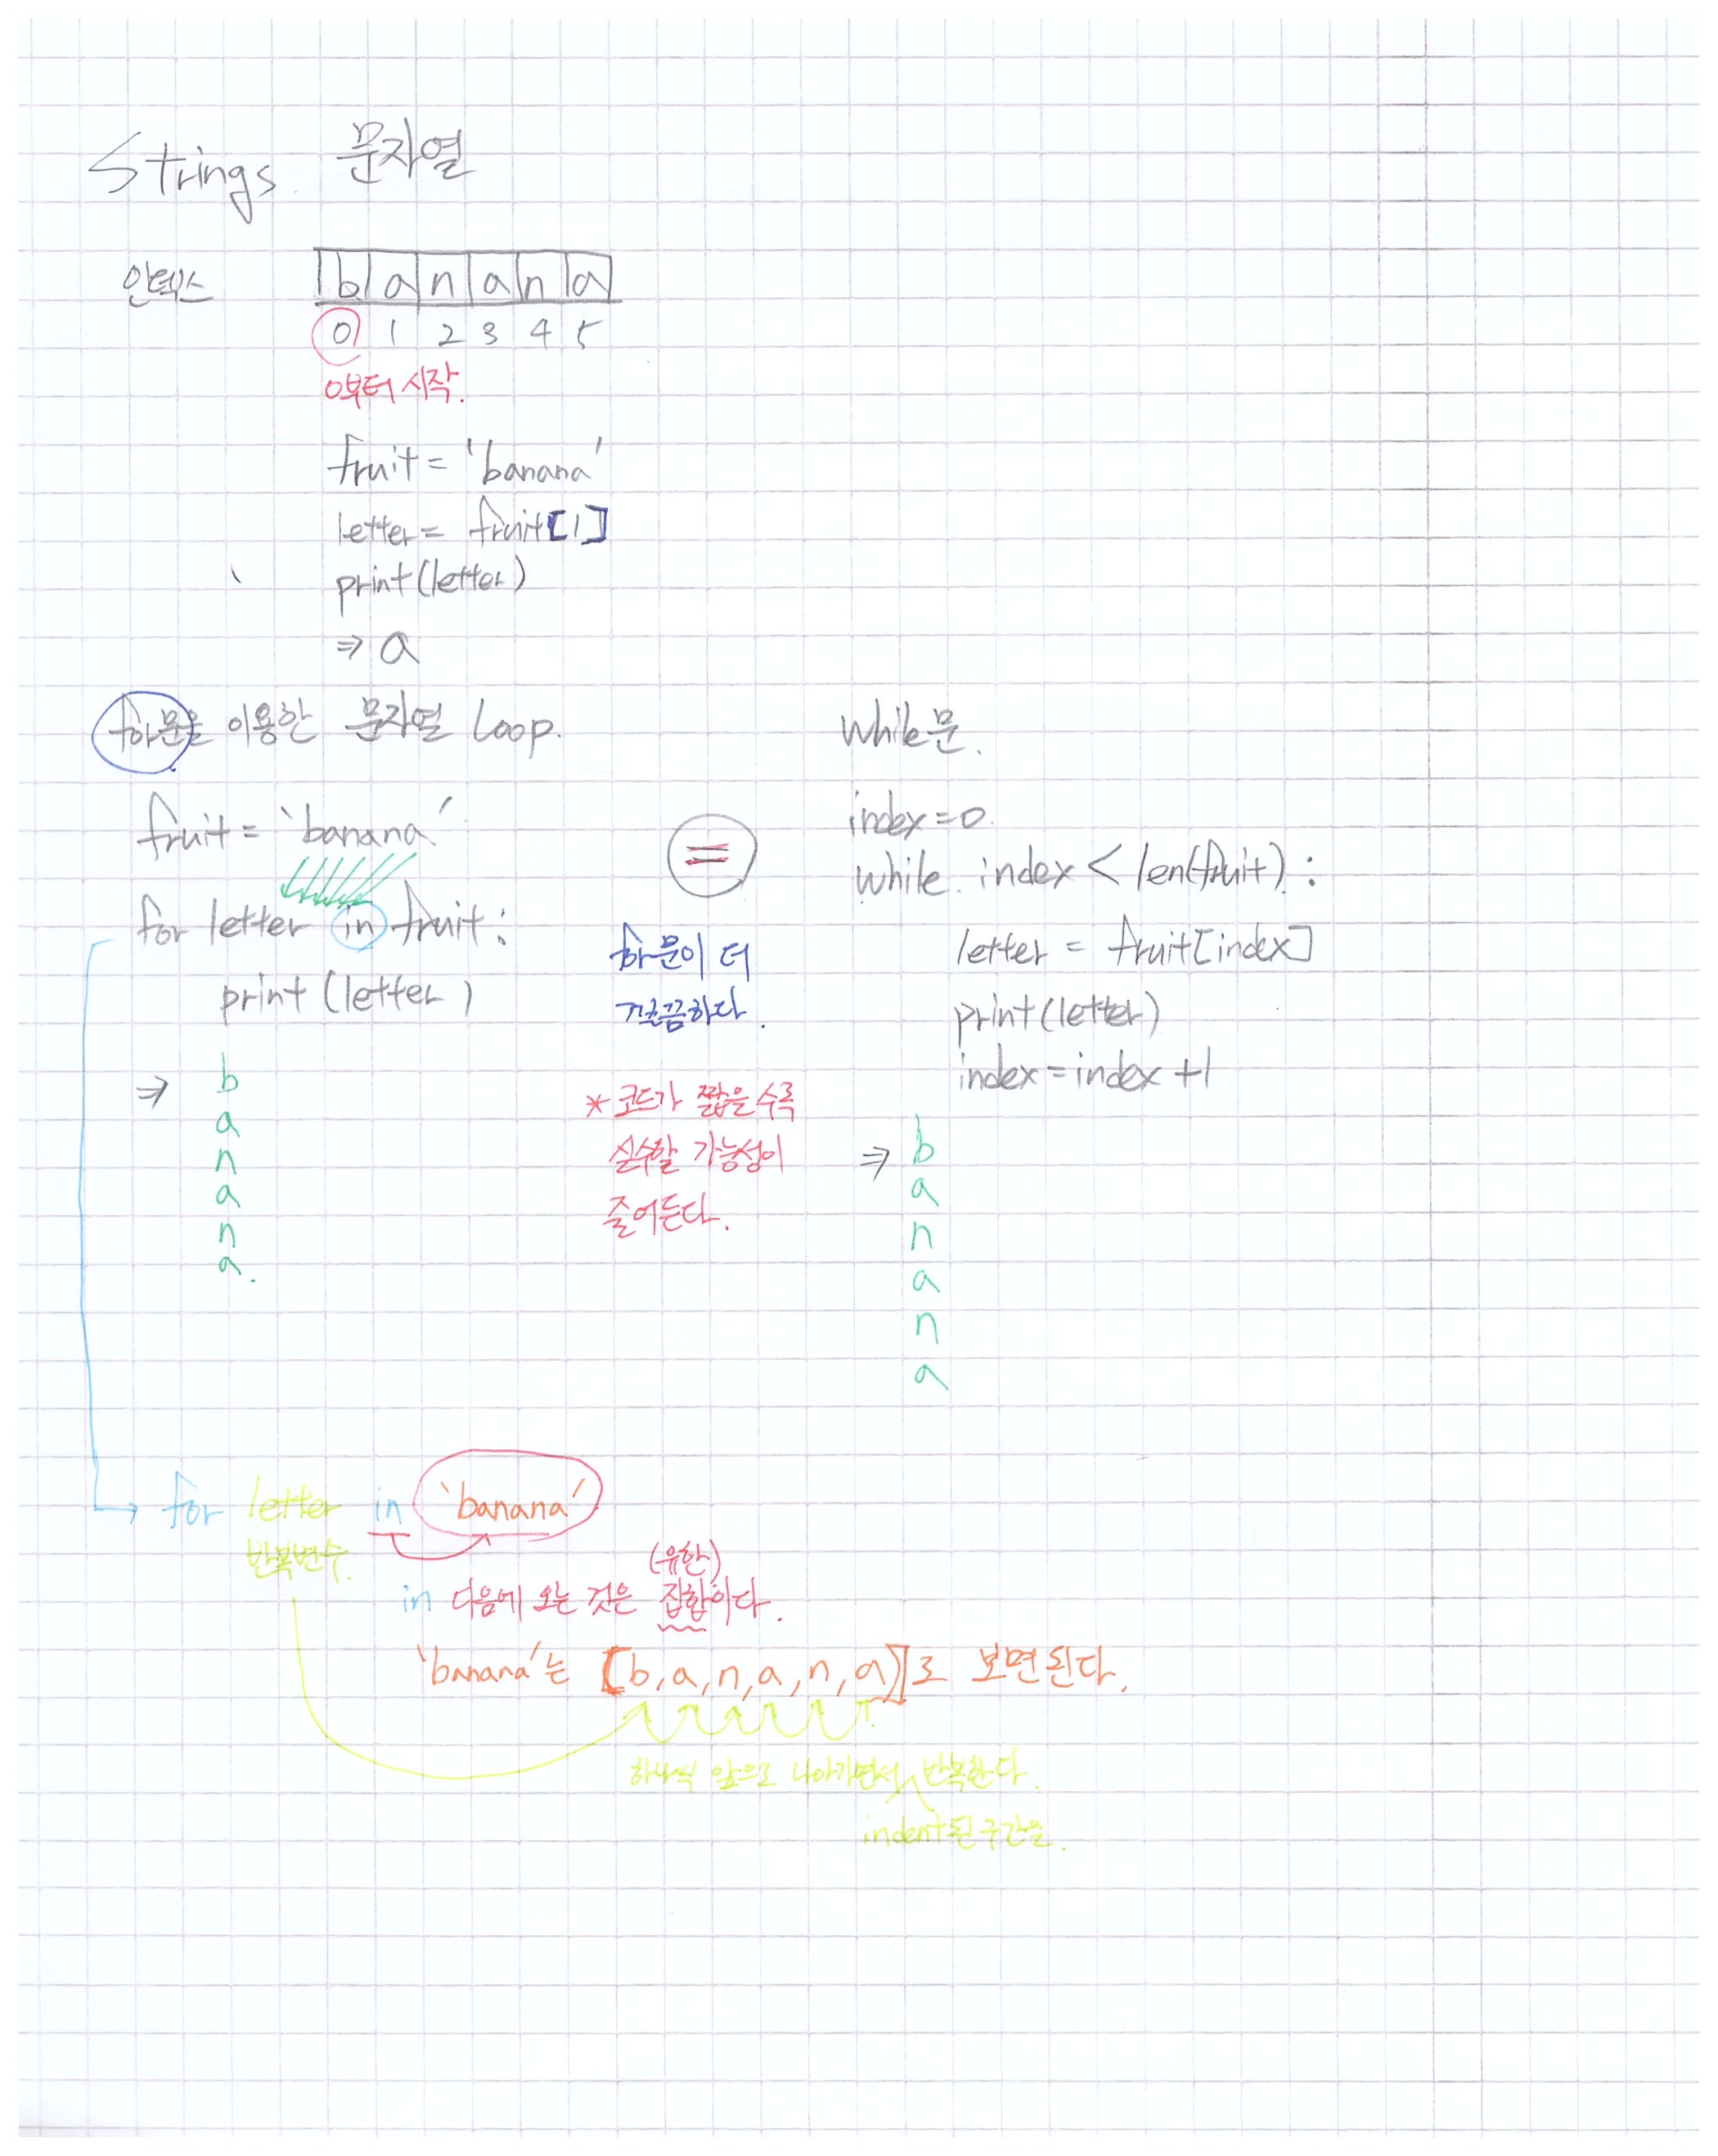 Strings 문자열
인덱스
b a n a n a
0 1 2 3 4 5
0부터 시작.
fruit = 'banana'
letter = fruit[1]
print(letter)
⇒ a
for문을 이용한 문자열 Loop.
fruit = 'banana'
for letter in fruit:
print(letter)
⇒ b
a
n
a
n
a.
=
for문이 더
깔끔하다.
* 코드가 짧을수록
실수할 가능성이
줄어든다.
while문.
index=0
while index < len(fruit):
letter = fruit[index]
print(letter)
index=index+1
⇒ b
a
n
a
n
a
→ for letter in 'banana'
반복변수.
(유한)
in 다음에 오는 것은 집합이다.
'banana'는 [b,a,n,a,n,a]로 보면된다.
하나씩 앞으로 나아가면서 반복한다.
indent된 구간을.